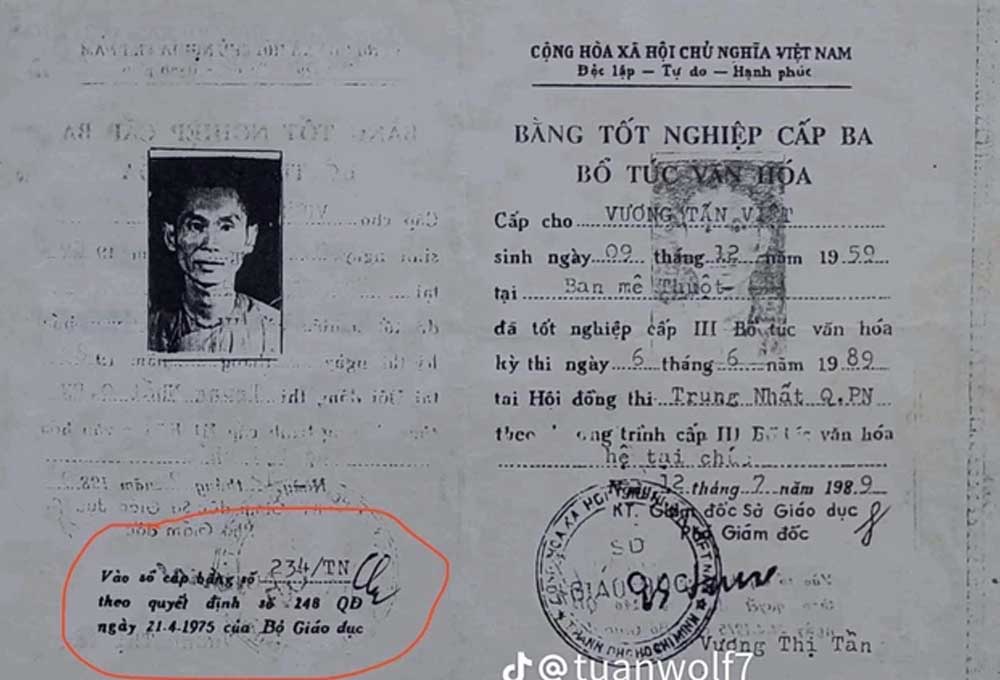 CỘNG HÒA XÃ HỘI CHỦ NGHĨA VIỆT NAM
Độc lập — Tự do — Hạnh phúc
BẰNG TỐT NGHIỆP CẤP BA
BỔ TÚC VĂN HÓA
Cấp cho VƯƠNG TẤN VIỆT
sinh ngày 09 tháng 12 năm 1959
tại Ban mê Thuột
đã tốt nghiệp cấp III Bổ túc văn hóa
kỳ thi ngày 6 tháng 6 năm 1989
tại Hội đồng thi Trung Nhất Q.PN
theo trình cấp III Bổ túc văn hóa
hệ tại
12 tháng 7 năm 1989
KT. Giám đốc Sở Giáo dục
Phó Giám đốc
SỞ
GIÁO DỤC
THÀNH PHỐ HỒ CHÍ MINH
Vương Thị Tần
Vào sổ cấp bằng số 234/TN
theo quyết định số 248 QĐ
ngày 21.4.1975 của Bộ Giáo dục
@tuanwolf7